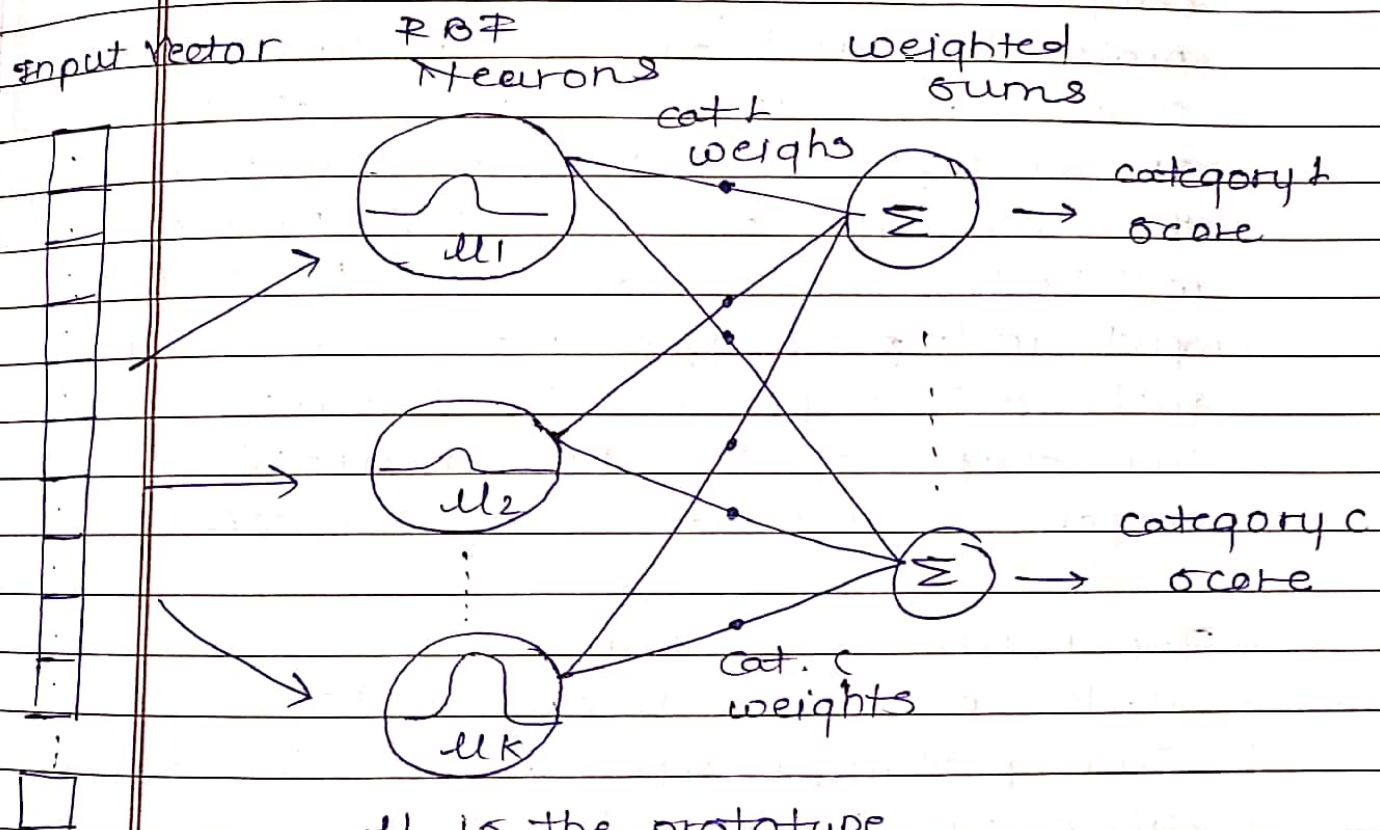 Input Vector
RBF
Neurons
weighted
sums
cat 1
weighs
μ1
Σ
→ category 1
score
μ2
Σ
→ category C
score
μK
cat. C
weights
μ is the prototype